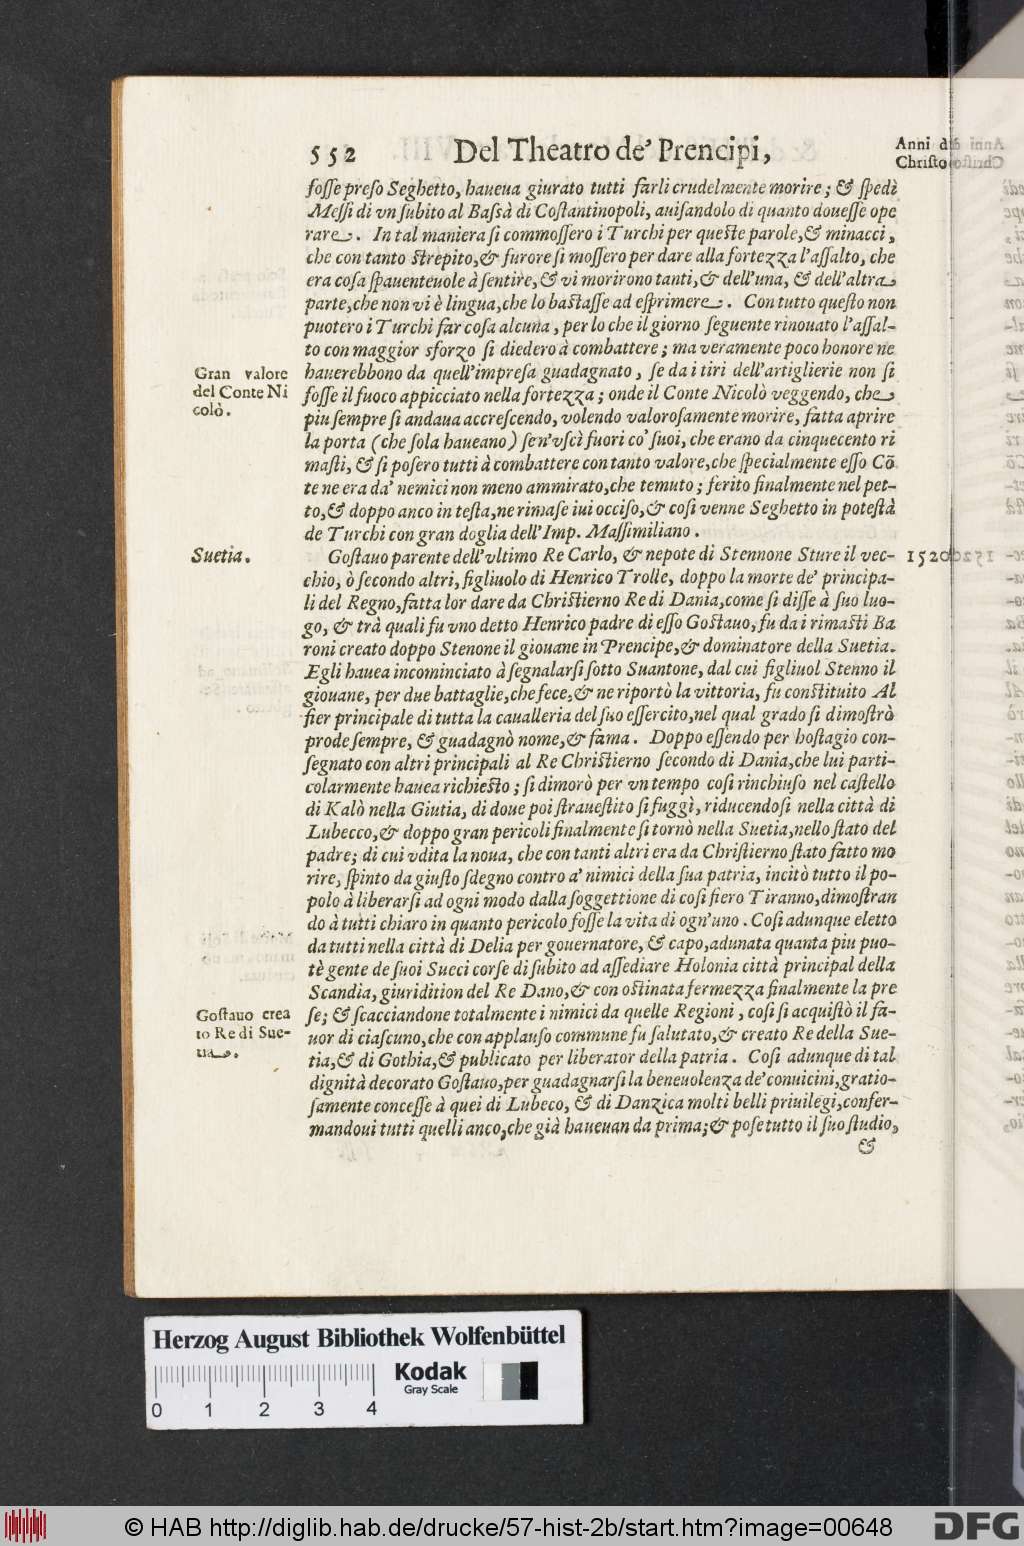 552 Del Theatro de' Prencipi,
Anni di
Christo
fosse preso Seghetto, haueua giurato tutti farli crudelmente morire; & spedì
Messi di vn subito al Bassà di Costantinopoli, auisandolo di quanto douesse ope
rare. In tal maniera si commossero i Turchi per queste parole, & minacci,
che con tanto strepito, & furore si mossero per dare alla fortezza l'assalto, che
era cosa spauenteuole à sentire, & vi morirono tanti, & dell'una, & dell'altra
parte, che non vi è lingua, che lo bastasse ad esprimere. Con tutto questo non
puotero i Turchi far cosa alcuna, per lo che il giorno seguente rinouato l'assal-
to con maggior sforzo si diedero à combattere; ma veramente poco honore ne
Gran valore
del Conte Ni
colò.
hauerebbono da quell'impresa guadagnato, se da i tiri dell'artiglierie non si
fosse il fuoco appicciato nella fortezza; onde il Conte Nicolò veggendo, che
piu sempre si andaua accrescendo, volendo valorosamente morire, fatta aprire
la porta (che sola haueano) sen'vscì fuori co' suoi, che erano da cinquecento ri
masti, & si posero tutti à combattere con tanto valore, che specialmente esso Cō
te ne era da' nemici non meno ammirato, che temuto; ferito finalmente nel pet-
to, & doppo anco in testa, ne rimase iui occiso, & cosi venne Seghetto in potestà
de Turchi con gran doglia dell'Imp. Massimiliano.
Suetia.
1520
Gostauo parente dell'vltimo Re Carlo, & nepote di Stennone Sture il vec-
chio, ò secondo altri, figliuolo di Henrico Trolle, doppo la morte de' principa-
li del Regno, fatta lor dare da Christierno Re di Dania, come si disse à suo luo-
go, & trà quali fu vno detto Henrico padre di esso Gostauo, fu da i rimasti Ba
roni creato doppo Stenone il giouane in Prencipe, & dominatore della Suetia.
Egli hauea incominciato à segnalarsi sotto Suantone, dal cui figliuol Stenno il
giouane, per due battaglie, che fece, & ne riportò la vittoria, fu constituito Al
fier principale di tutta la caualleria del suo essercito, nel qual grado si dimostrò
prode sempre, & guadagnò nome, & fama. Doppo essendo per hostagio con-
segnato con altri principali al Re Christierno secondo di Dania, che lui parti-
colarmente hauea richiesto; si dimorò per vn tempo cosi rinchiuso nel castello
di Kalò nella Giutia, di doue poi strauestito si fuggì, riducendosi nella città di
Lubecco, & doppo gran pericoli finalmente si tornò nella Suetia, nello stato del
padre; di cui vdita la noua, che con tanti altri era da Christierno stato fatto mo
rire, spinto da giusto sdegno contro a' nimici della sua patria, incitò tutto il po-
polo à liberarsi ad ogni modo dalla soggettione di cosi fiero Tiranno, dimostran
do à tutti chiaro in quanto pericolo fosse la vita di ogn'uno. Cosi adunque eletto
da tutti nella città di Delia per gouernatore, & capo, adunata quanta piu puo-
tè gente de suoi Sueci corse di subito ad assediare Holonia città principal della
Scandia, giuridition del Re Dano, & con ostinata fermezza finalmente la pre
Gostauo crea
to Re di Sue-
tia.
se; & scacciandone totalmente i nimici da quelle Regioni, cosi si acquistò il fa-
uor di ciascuno, che con applauso commune fu salutato, & creato Re della Sue-
tia, & di Gothia, & publicato per liberator della patria. Cosi adunque di tal
dignità decorato Gostauo, per guadagnarsi la beneuolenza de' conuicini, gratio-
samente concesse à quei di Lubeco, & di Danzica molti belli priuilegi, confer-
mandoui tutti quelli anco, che già haueuan da prima; & pose tutto il suo studio,
&
Herzog August Bibliothek Wolfenbüttel
Kodak
Gray Scale
0 1 2 3 4
© HAB http://diglib.hab.de/drucke/57-hist-2b/start.htm?image=00648
DFG